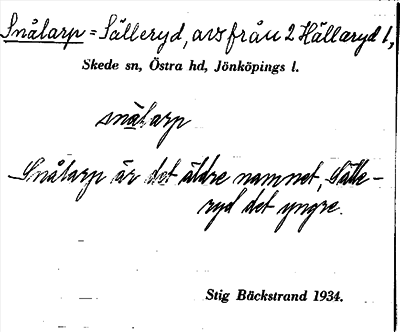 Snålarp = Sälleryd, avs från 2 Hälleryd 1,
Skede sn, Östra hd, Jönköpings l.
snålarp
Snålarp är det äldre namnet, Sälle-
ryd det yngre.
Stig Bäckstrand 1934.